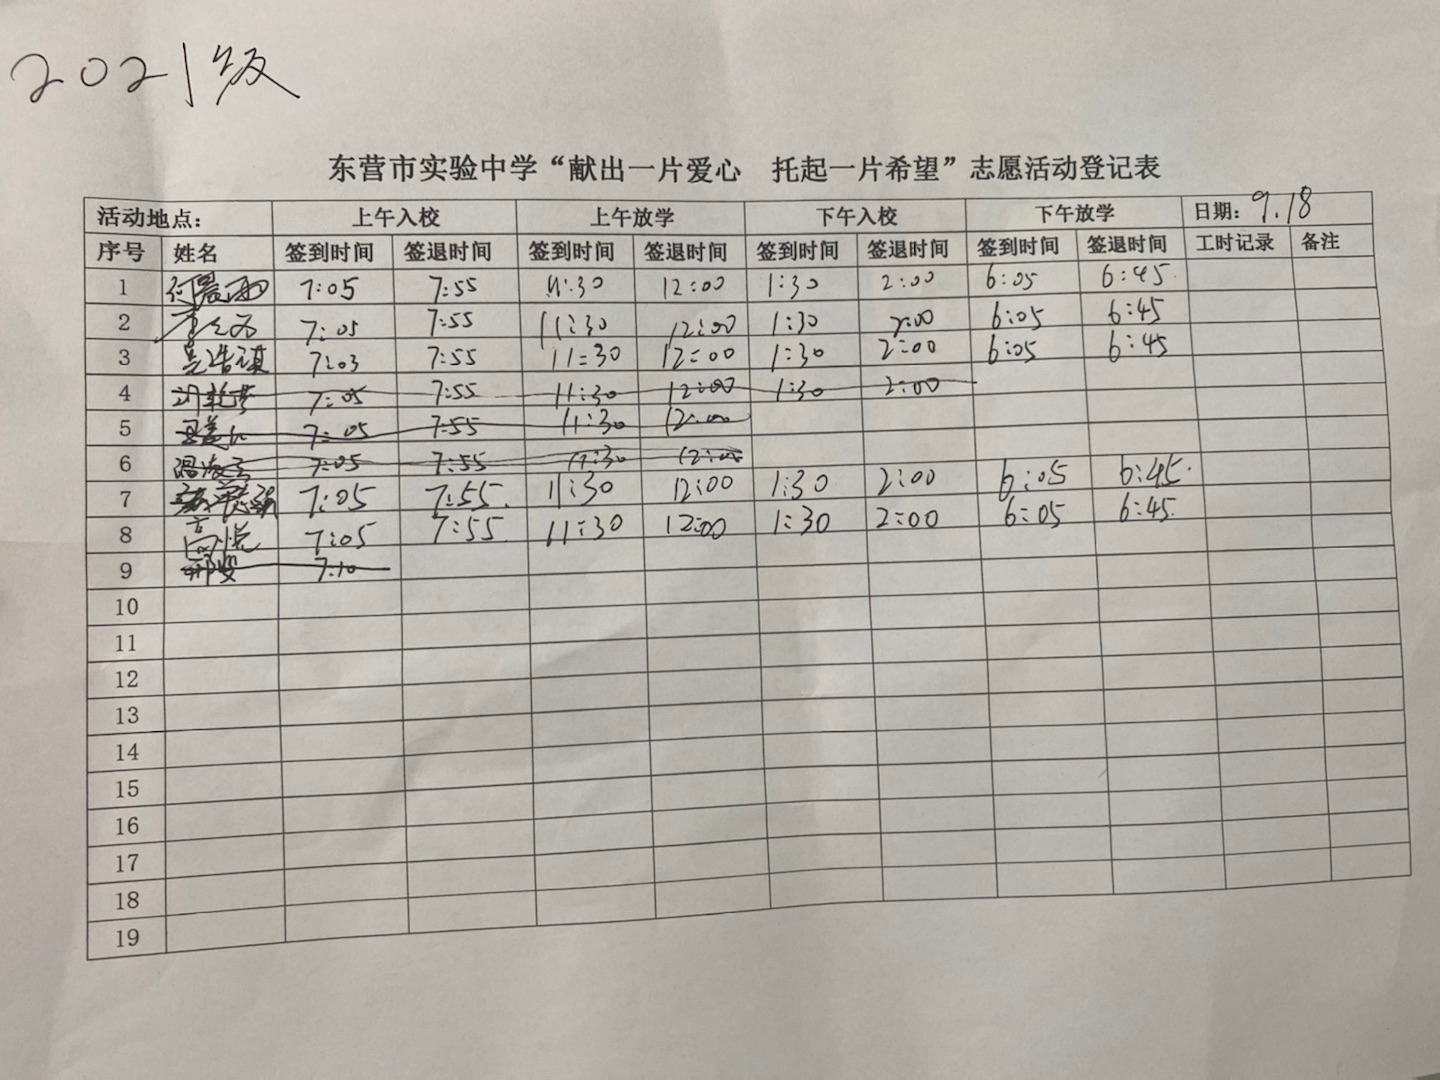 2021级
东营市实验中学“献出一片爱心 托起一片希望”志愿活动登记表
活动地点： 上午入校 上午放学 下午入校 下午放学 日期：9.18
序号 姓名 签到时间 签退时间 签到时间 签退时间 签到时间 签退时间 签到时间 签退时间 工时记录 备注
1 7:05 7:55 11:30 12:00 1:30 2:00 6:05 6:45
2 7:05 7:55 11:30 12:00 1:30 2:00 6:05 6:45
3 7:03 7:55 11:30 12:00 1:30 2:00 6:05 6:45
4 7:05 7:55 11:30 12:00 1:30 2:00
5 7:05 7:55 11:30 12:00
6 7:05 7:55 11:30 12:00
7 7:05 7:55 11:30 12:00 1:30 2:00 6:05 6:45
8 高悦 7:05 7:55 11:30 12:00 1:30 2:00 6:05 6:45
9 7:10
10
11
12
13
14
15
16
17
18
19